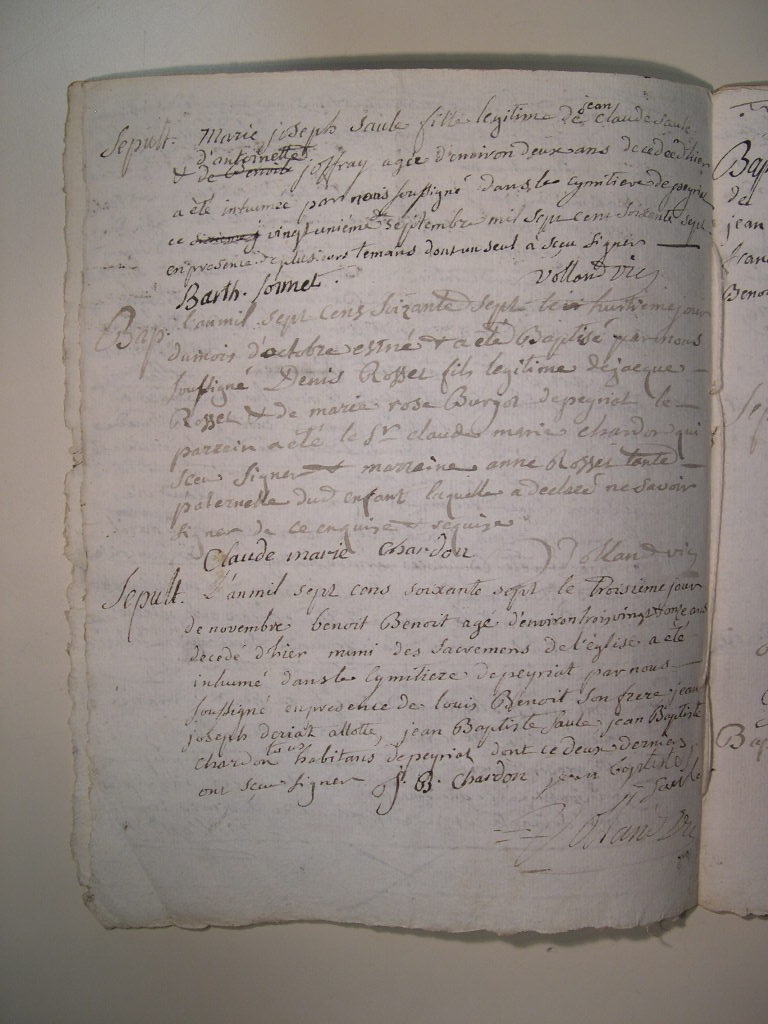 Sepult. Marie joseph Saule fille legitime de jean claude Saule
& d'antoinette joffray agée d'environ deux ans decedée d'hier
a été inhumée par nous soussigné dans le cymitiere de peyriat
ce vingt unieme septembre mil sept cens soixante sept
en presence de plusieurs temans dont un seul à sçeu signer
Barth. Sonnet. Volland vic
Bap. L'an mil sept cens soixante sept le huitieme jour
du mois d'octobre est né & a eté Baptisé par nous
soussigné Denis Rosset fils legitime de jacque
Rosset & de marie rose Burgot de peyriat le
parrein a eté le Sr claude marie chardon qui
sceu signer & marraine anne Rosset tante
paternelle dud enfant laquelle a declaré ne savoir
signer de ce enquise & requise
Claude marie chardon Volland vic
Sepult. L'an mil sept cens soixante sept le troisieme jour
de novembre benoit Benoit agé d'environ troisvingt & onze ans
décedé d'hier muni des sacremens de l'église a eté
inhumé dans le Cymitiere de peyriat par nous
soussigné en presence de louis Benoit son frere jean
joseph deriat jean Baptiste Saule jean Baptiste
chardon tous habitans de peyriat dont ce deux derniers
ont sçeu signer J. B. chardon jean baptiste
Saule
Volland vic
Bap
de
jean
fran
Benoi
Sep
Bap